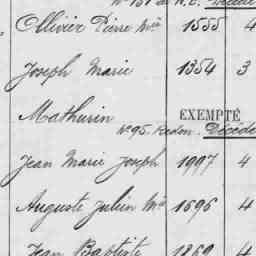 Nº 151 de R.E. Décédé
Ollivier Pierre Mie 1555 4
Joseph Marie 1354 3
Mathurin EXEMPTÉ
Nº 95. Redon. Décédé
Jean Marie Joseph 1997 4
Auguste Julien Mie 1696 4
Jean Baptiste 1869 4